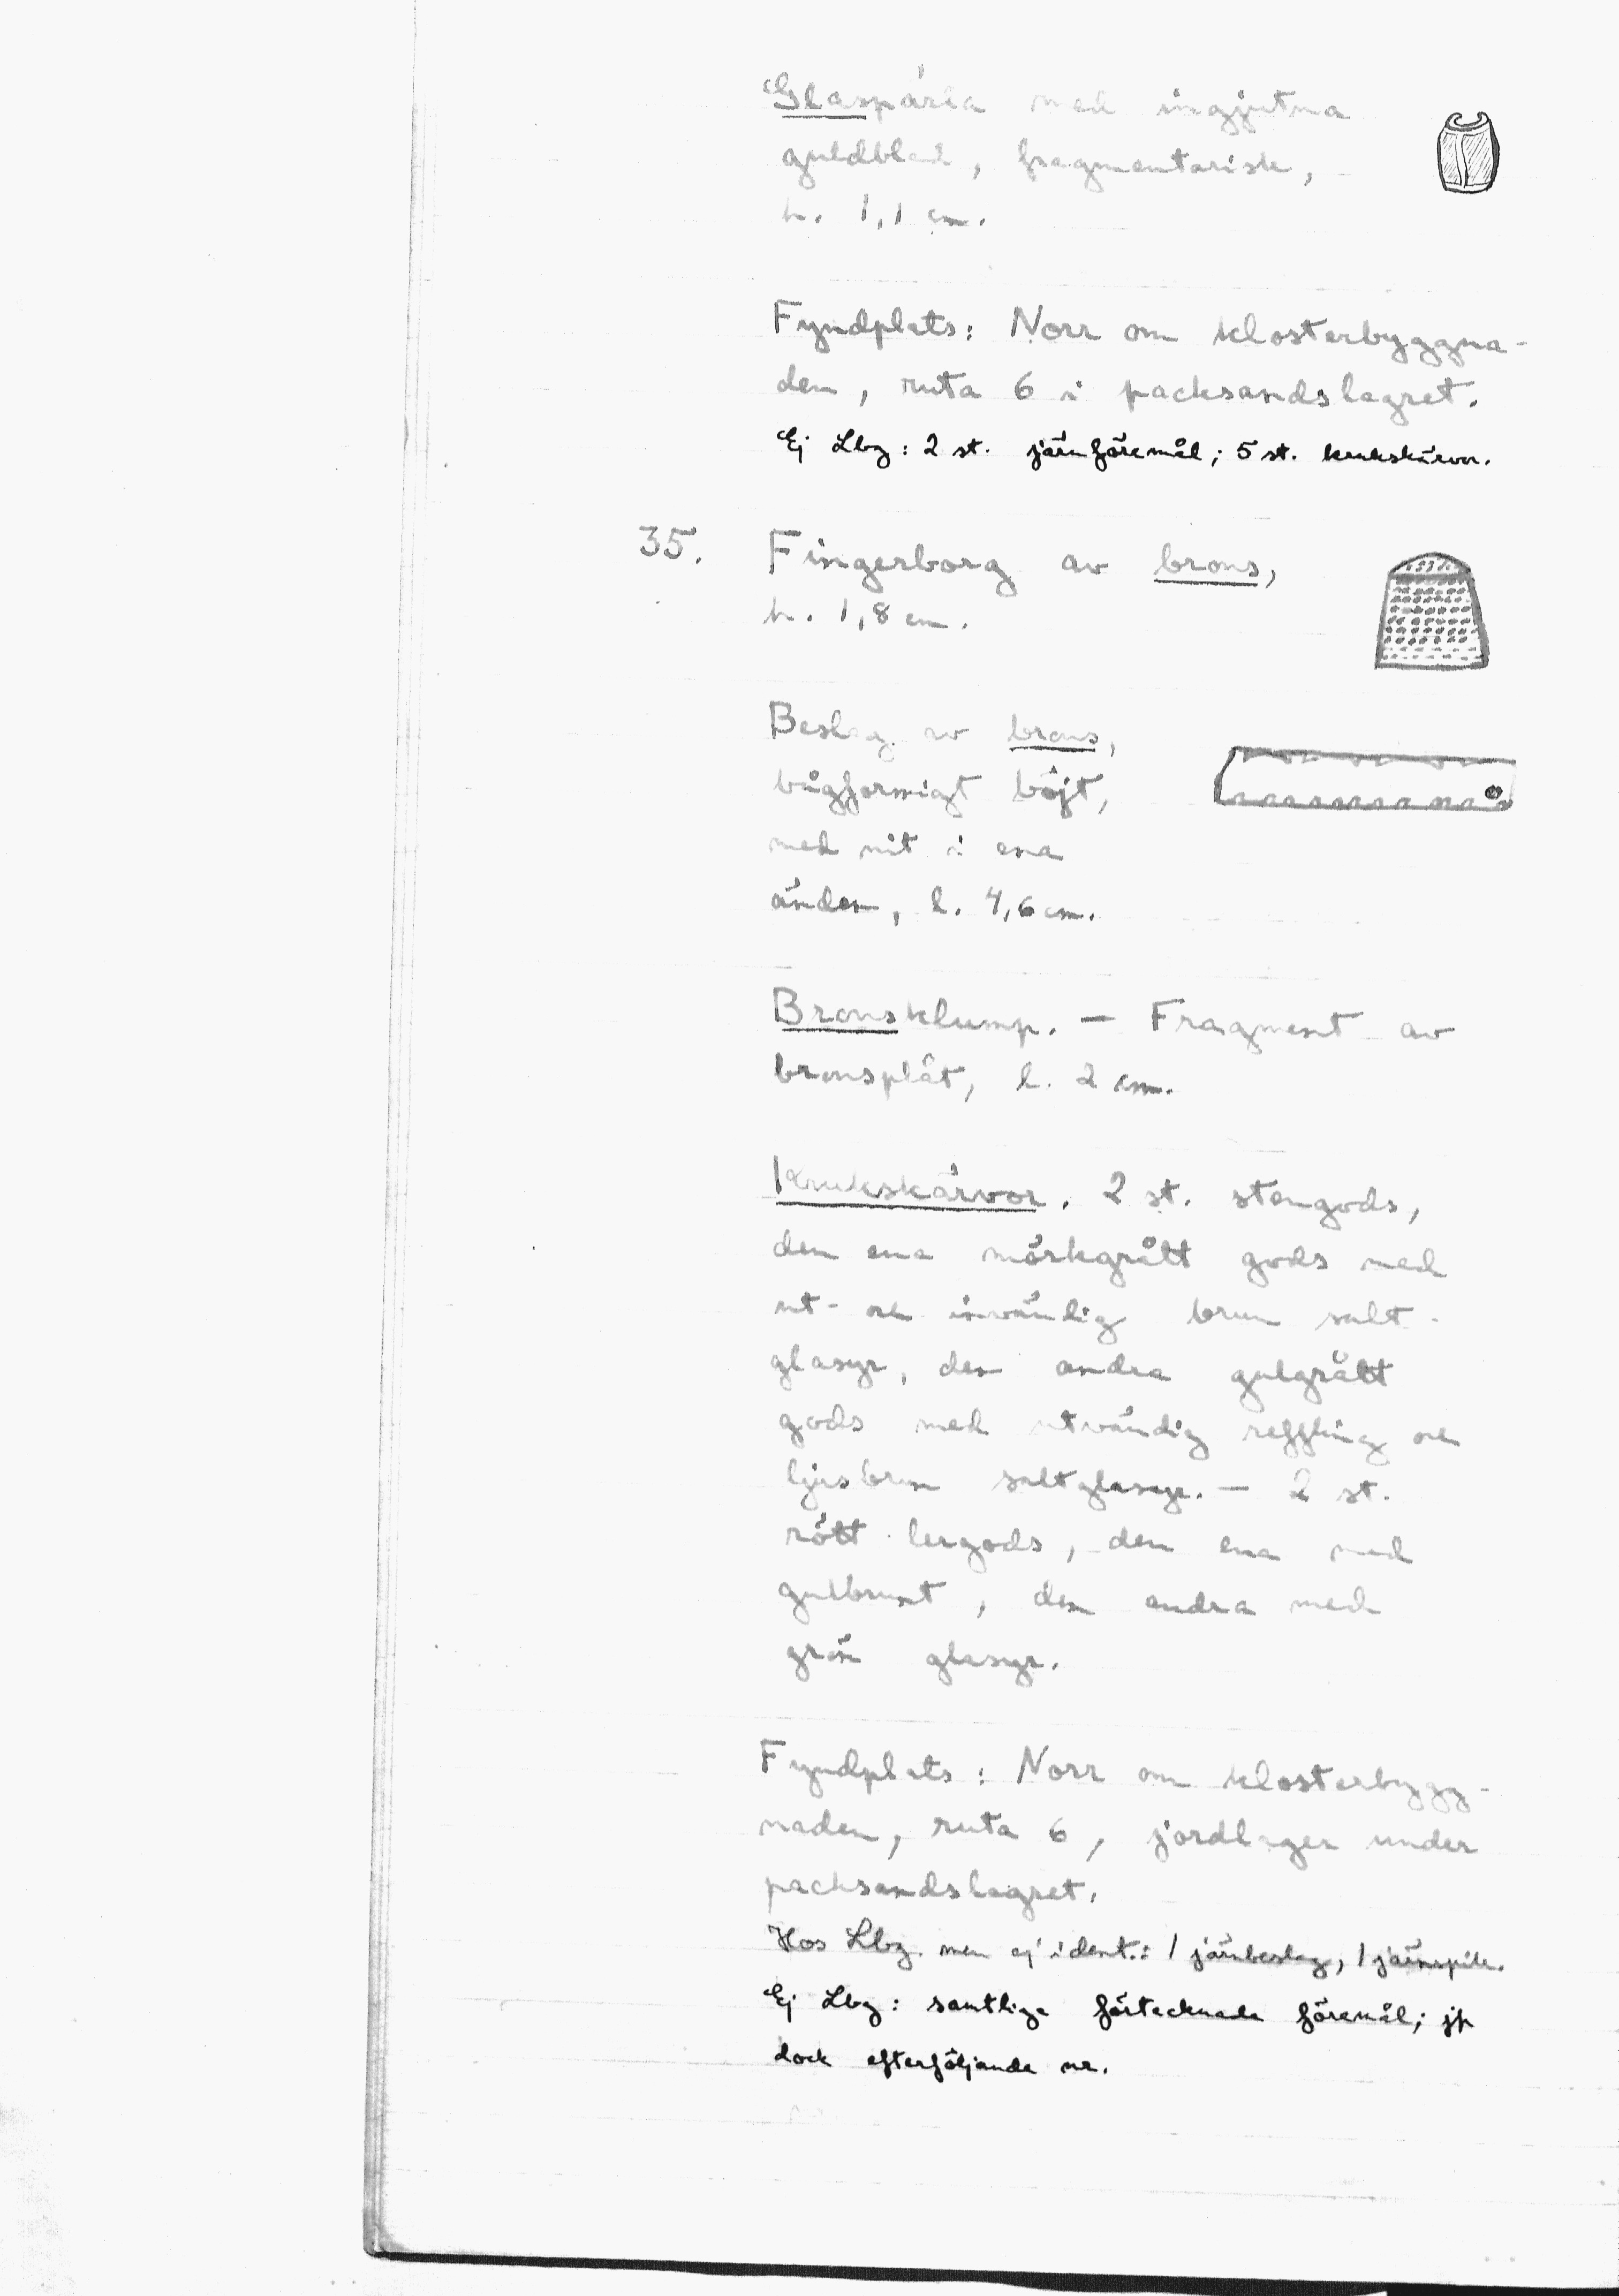 Glaspärla med ingjutna
guldblad, fragmentarisk,
h. 1,1 cm.
Fyndplats: Norr om klosterbyggna-
den, ruta 6 i packsandslagret.
Ej Lbg: 2 st. järnföremål; 5 st. krukskärvor.
35. Fingerborg av brons,
h. 1,8 cm.
Beslag av brons,
bågformigt böjt,
med nit i ena
änden, l. 4,6 cm.
Bronsklump. — Fragment av
bronsplåt, l. 2 cm.
Krukskärvor. 2 st. stengods,
den ena mörkgrått gods med
ut- och invändig brun salt-
glasyr, den andra gulgrått
gods med utvändig reffling och
ljusbrun saltglasyr. — 2 st.
rött lergods, den ena med
gulbrunt, den andra med
grön glasyr.
Fyndplats: Norr om klosterbygg-
naden, ruta 6, jordlager under
packsandslagret.
Hos Lbg. men ej ident.: 1 järnbeslag, 1 järnspik.
Ej Lbg: samtliga förtecknade föremål; jfr
dock efterföljande nr.